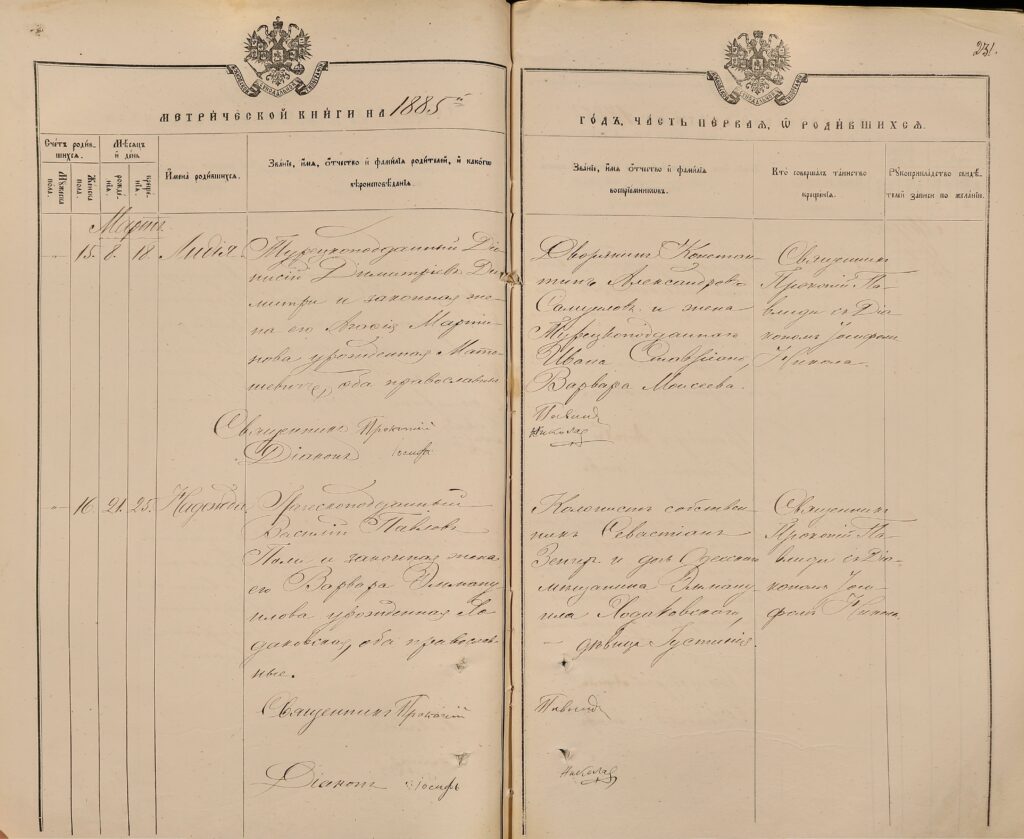 231.
МЕТРИЧЕСКОЙ КНИГИ НА 1885й
ГОДЪ, ЧАСТЬ ПЕРВАЯ, Ѡ РОДИВШИХСЯ.
Счетъ родив-
шихся.
Мужеска пола.
Женска пола.
Мѣсяцъ
и день
рожде-
нія.
креще-
нія.
Имена родившихся.
Званіе, имя, отчество и фамилія родителей, и какого
вѣроисповѣданія.
Званіе, имя отчество и фамилія
воспріемниковъ.
Кто совершалъ таинство
крещенія.
Рукоприкладство свидѣ-
телей записи по желанію.
Мартъ
15. 8. 18. Лидія.
Турецкоподданный Діо-
нисій Димитріевъ Ди-
митри и законная же-
на его Марти-
нова урожденная Мато-
шевичъ, оба православные
Священникъ Прокопій
Діаконъ Іосифъ
Дворянинъ Констан-
тинъ Александровъ
и жена
Турецкоподданнаго
Ивана
Варвара Моисеева.
Павлиди
Николая
Священникъ
Прокопій Па-
влиди съ Діа-
кономъ Іосифомъ
Никола.
16. 21. 25. Надежда
Греческоподданный
Василій Павловъ
и законная жена
его Варвара Эммануи-
лова урожденная Хо-
даковская, оба православ-
ные.
Священникъ Прокопій
Діаконъ Іосифъ
Колонистъ собствен-
никъ Севастіанъ
и дочь Одесскаго
мѣщанина Эммануи-
ла Ходаковскаго,
дѣвица Густинія.
Павлиди
Николая
Священникъ
Прокопій Па-
влиди съ Діа-
кономъ Іоси-
фомъ Никола.